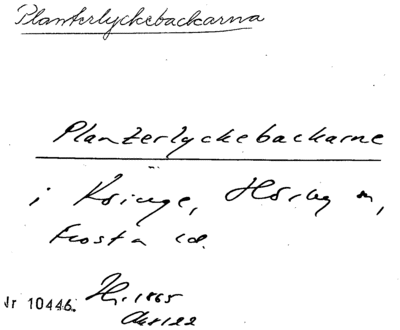 Planterlyckebackarna
Planterlyckebackarne
i Kringe, Hörby sn,
Frosta hd.
Nr 10446. 1865